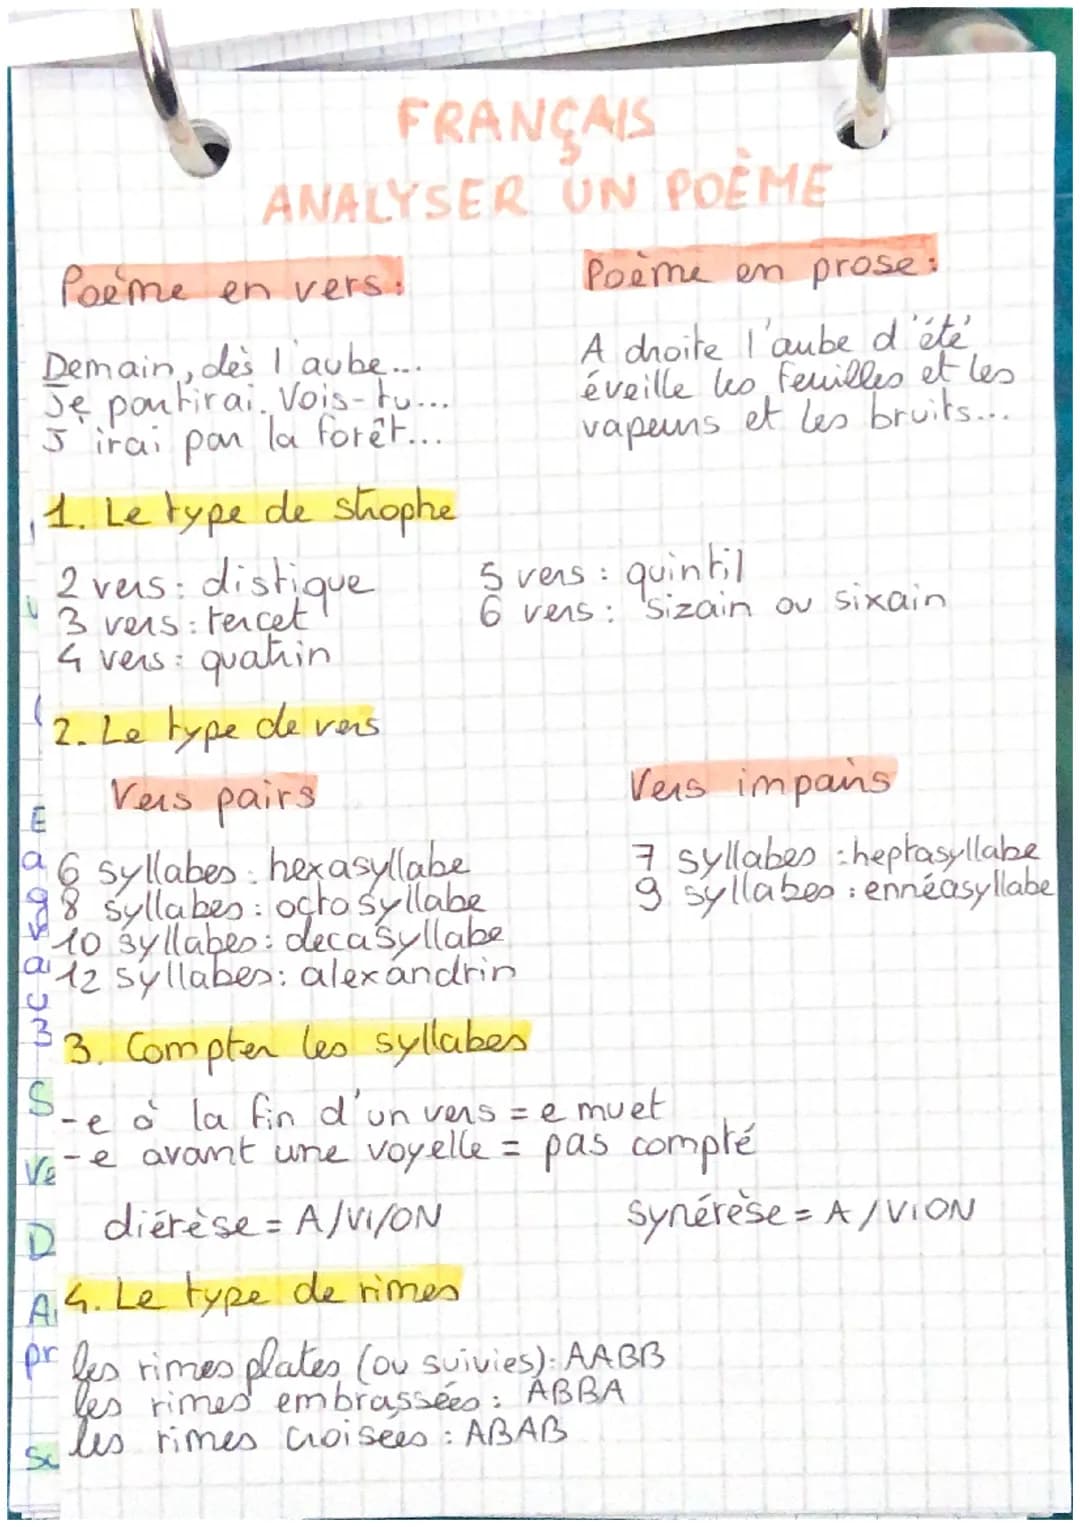 FRANÇAIS
ANALYSER UN POÈME
Poème en vers:
Demain, dès l'aube...
Je partirai. Vois-tu...
J'irai par la forêt...
Poème en prose:
A droite l'aube d'été
éveille les feuilles et les
vapeurs et les bruits...
1. Le type de strophe
2 vers: distique
3 vers: tercet
4 vers: quatrin
5 vers: quintil
6 vers: sizain ou sixain
2. Le type de vers
Vers pairs
6 syllabes: hexasyllabe
8 syllabes: octosyllabe
10 syllabes: decasyllabe
12 syllabes: alexandrin
Vers impairs
7 syllabes: heptasyllabe
9 syllabes: ennéasyllabe
3. Compter les syllabes
-e à la fin d'un vers = e muet
-e avant une voyelle = pas compté
diérèse = A/VI/ON
synérèse = A/VION
4. Le type de rimes
les rimes plates (ou suivies): AABB
les rimes embrassées: ABBA
les rimes croisees: ABAB